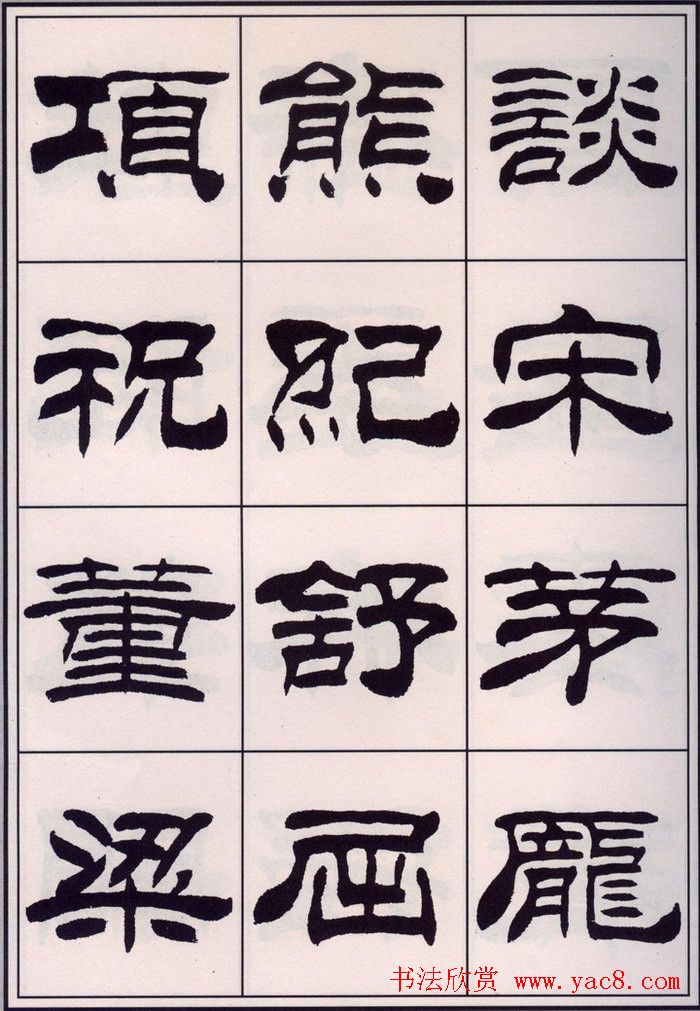 談宋茅龐
熊紀舒屈
項祝董梁
书法欣赏 www.yac8.com